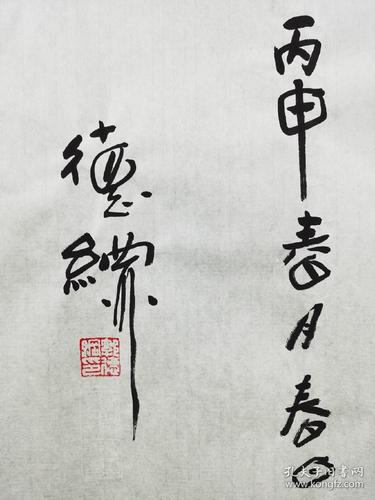 丙申春月春日
德
孔夫子旧书网
www.kongfz.com